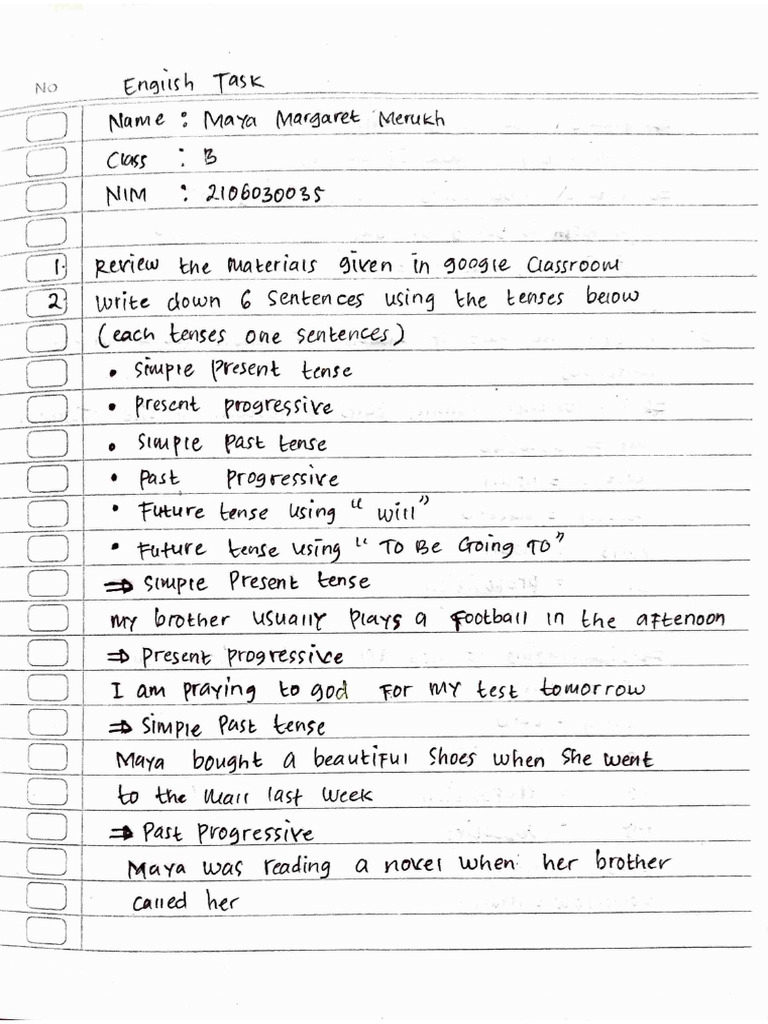 No English Task
Name : Maya Margaret Merukh
Class : B
NIM : 2106030035
1. Review the materials given in google Classroom
2. Write down 6 sentences using the tenses below
(each tenses one sentences)
• Simple Present tense
• Present progressive
• Simple Past tense
• Past progressive
• Future tense using "will"
• Future tense using "To Be Going To"
⇒ Simple Present tense
My brother usually plays a football in the afternoon
⇒ Present progressive
I am praying to god for my test tomorrow
⇒ Simple Past tense
Maya bought a beautiful shoes when she went
to the Mall last week
⇒ Past progressive
Maya was reading a novel when her brother
called her